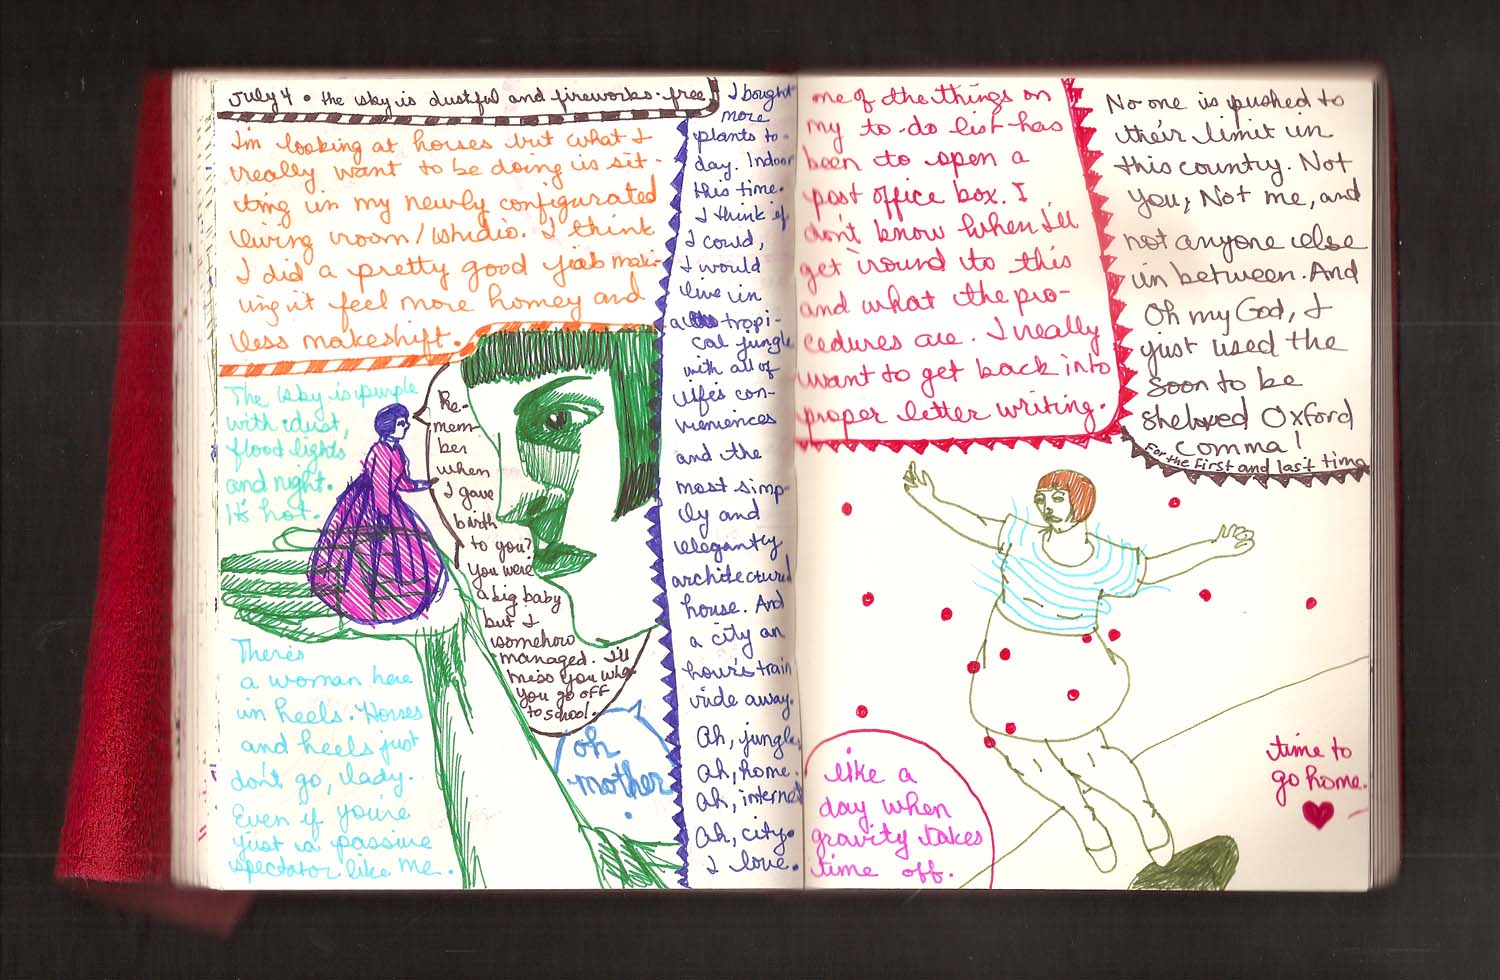 July 4 • the sky is dustful and fireworks-free
I'm looking at horses but what I
really want to be doing is sit-
ting in my newly configurated
living room/studio. I think
I did a pretty good job mak-
ing it feel more homey and
less makeshift.
The sky is purple
with dust,
flood lights
and night.
It's hot.
Re-
mem-
ber
when
I gave
birth
to you?
You were
a big baby
but I
somehow
managed. I'll
miss you when
you go off
to school.
oh
mother
.
There's
a woman here
in heels. Horses
and heels just
don't go, lady.
Even if you're
just a passive
spectator like me.
I bought
more
plants to-
day. Indoor
this time.
I think if
I could,
I would
live in
a tropi-
cal jungle
with all of
life's con-
veniences
and the
most simp-
ly and
elegantly
architectured
house. And
a city an
hour's train
ride away.
Ah, jungle.
Ah, home.
Ah, internet
Ah, city.
I love.
one of the things on
my to-do list has
been to open a
post office box. I
don't know when I'll
get 'round to this
and what the pro-
cedures are. I really
want to get back into
proper letter writing.
No one is pushed to
their limit in
this country. Not
you, Not me, and
not anyone else
in between. And
Oh my God, I
just used the
soon to be
shelved Oxford
Comma!
For the first and last time
like a
day when
gravity takes
time off.
time to
go home.